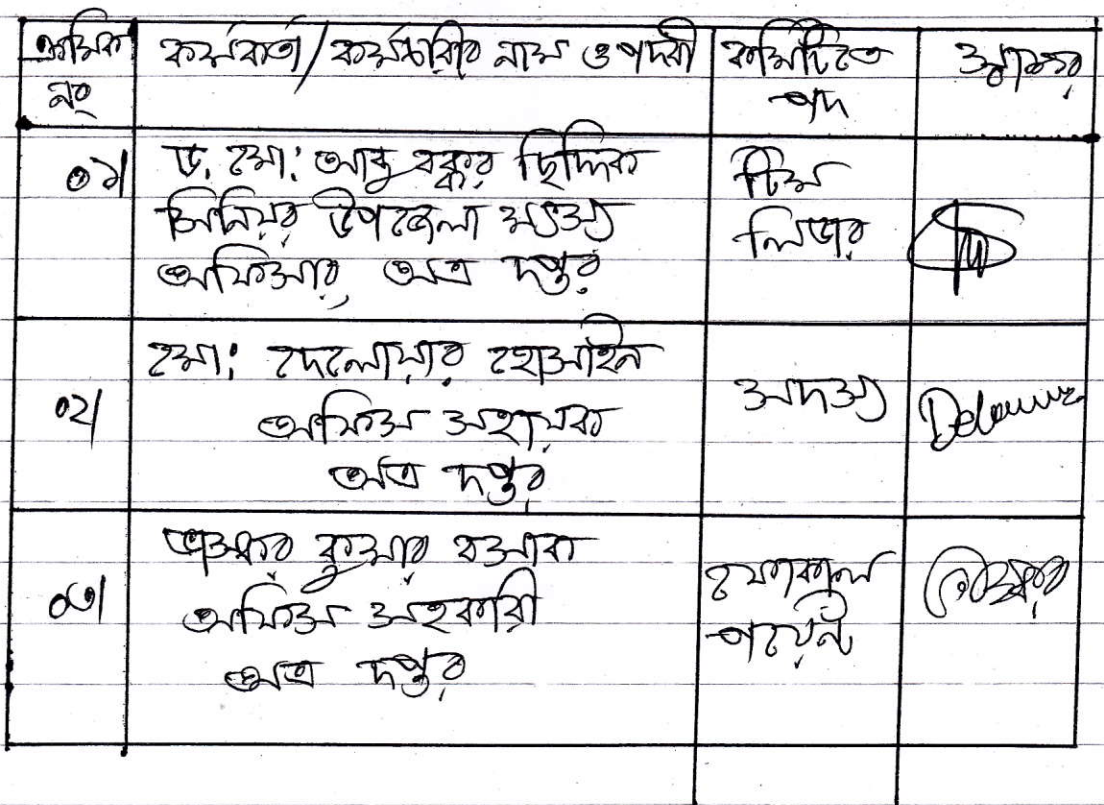 ক্রমিক নং | কর্মকর্তা/কর্মচারীর নাম ও পদবী | কমিটিতে পদ | স্বাক্ষর
০১। | ড. মো: আবু বক্কর ছিদ্দিক
সিনিয়র উপজেলা মৎস্য
অফিসার, অত্র দপ্তর | টিম
লিডার
০২। | মো: দেলোয়ার হোসাইন
অফিস সহায়ক
অত্র দপ্তর | সদস্য | Delowar
০৩। | ভাস্কর কুমার বসাক
অফিস সহকারী
অত্র দপ্তর | ফোকাল
পয়েন্ট | ভাস্কর